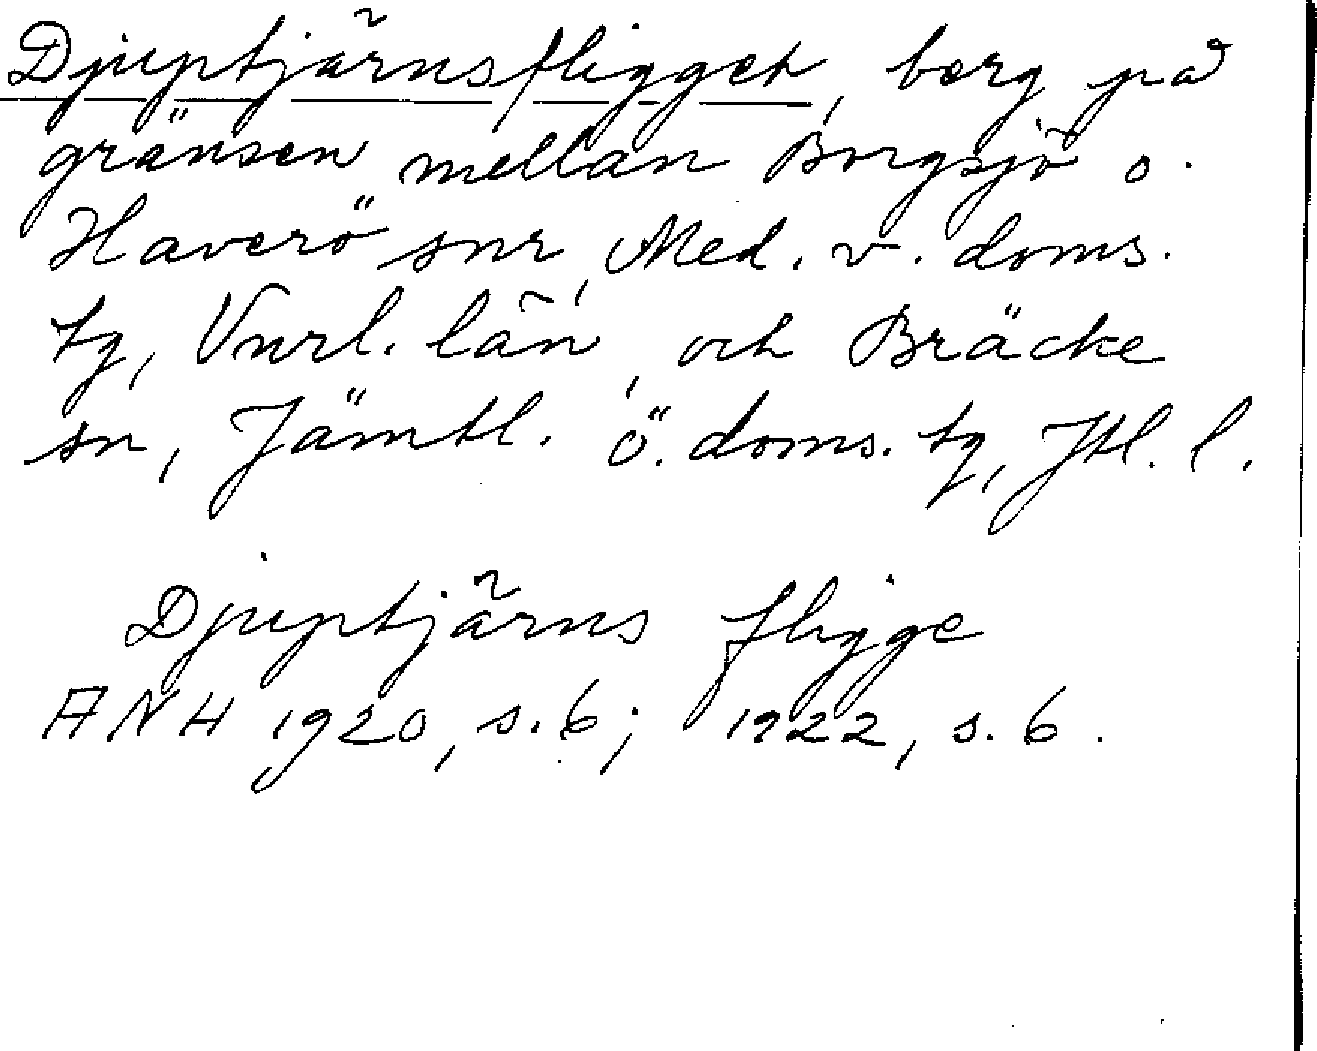 Djuptjärnsfligget, berg på
gränsen mellan Borgsjö o.
Haverö snr, Med. v. doms.
tg, Vnrl. län, och Bräcke
sn, Jämtl. ö. doms. tg, Jtl. l.
Djuptjärns fligge
ANH 1920, s. 6; 1922, s. 6.